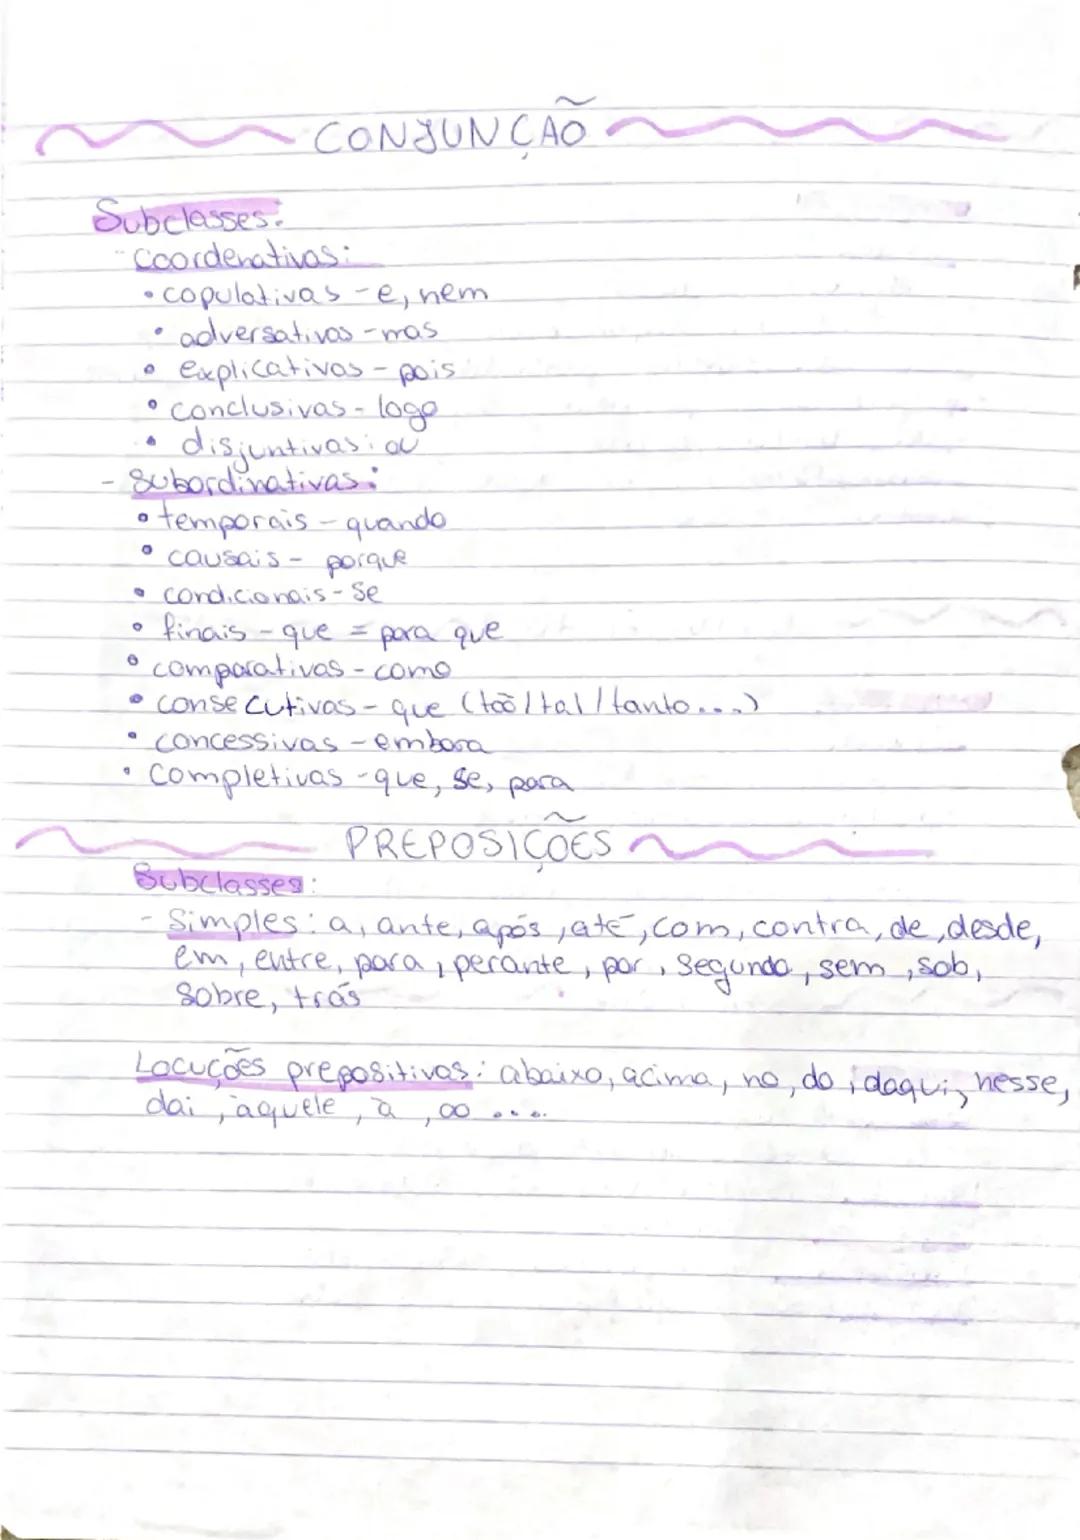 CONJUNÇÃO
Subclasses:
- Coordenativas:
• copulativas - e, nem
• adversativas - mas
• explicativas - pois
• conclusivas - logo
• disjuntivas: ou
- Subordinativas:
• temporais - quando
• causais - porque
• condicionais - se
• finais - que = para que
• comparativas - como
• consecutivas - que (tão/tal/tanto...)
• concessivas - embora
• completivas - que, se, para
PREPOSIÇÕES
Subclasses:
- Simples: a, ante, após, até, com, contra, de, desde,
em, entre, para, perante, por, segundo, sem, sob,
sobre, trás
Locuções prepositivas: abaixo, acima, no, do, daqui, nesse,
dai, àquele, à, ao ....